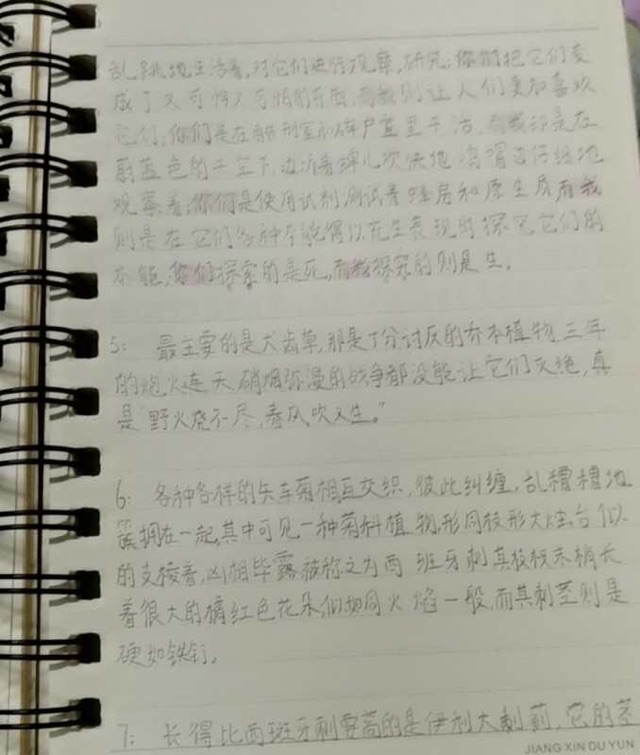 乱跳地生活着,对它们进行观察,研究;你们把它们变
成了又可怖又可怕的东西,而我则让人们更加喜欢
它们;你们是在酷刑室和碎尸室里干活,而我却是在
蔚蓝色的天空下,边听着蝉儿欢快地鸣唱边仔细地
观察着;你们是使用试剂测试着蜂房和原生质,而我
则是在它们各种本能得以充分表现时探究它们的
本能,你们探索的是死,而我探究的则是生。
5: 最主要的是犬齿草,那是十分讨厌的禾本植物,三年
的炮火连天、硝烟弥漫的战争都没能让它们灭绝,真
是“野火烧不尽,春风吹又生。”
6: 各种各样的矢车菊相互交织,彼此纠缠,乱糟糟地
簇拥在一起,其中可见一种菊科植物,形同枝形大烛台似
的支棱着,凶相毕露,被称之为西班牙刺,其枝杈末梢长
着很大的橘红色花朵,似如同火焰一般,而其刺茎则是
硬如铁钉。
7: 长得比西班牙刺要高的是伊利大刺蓟,它的茎
JIANG XIN DU YUN